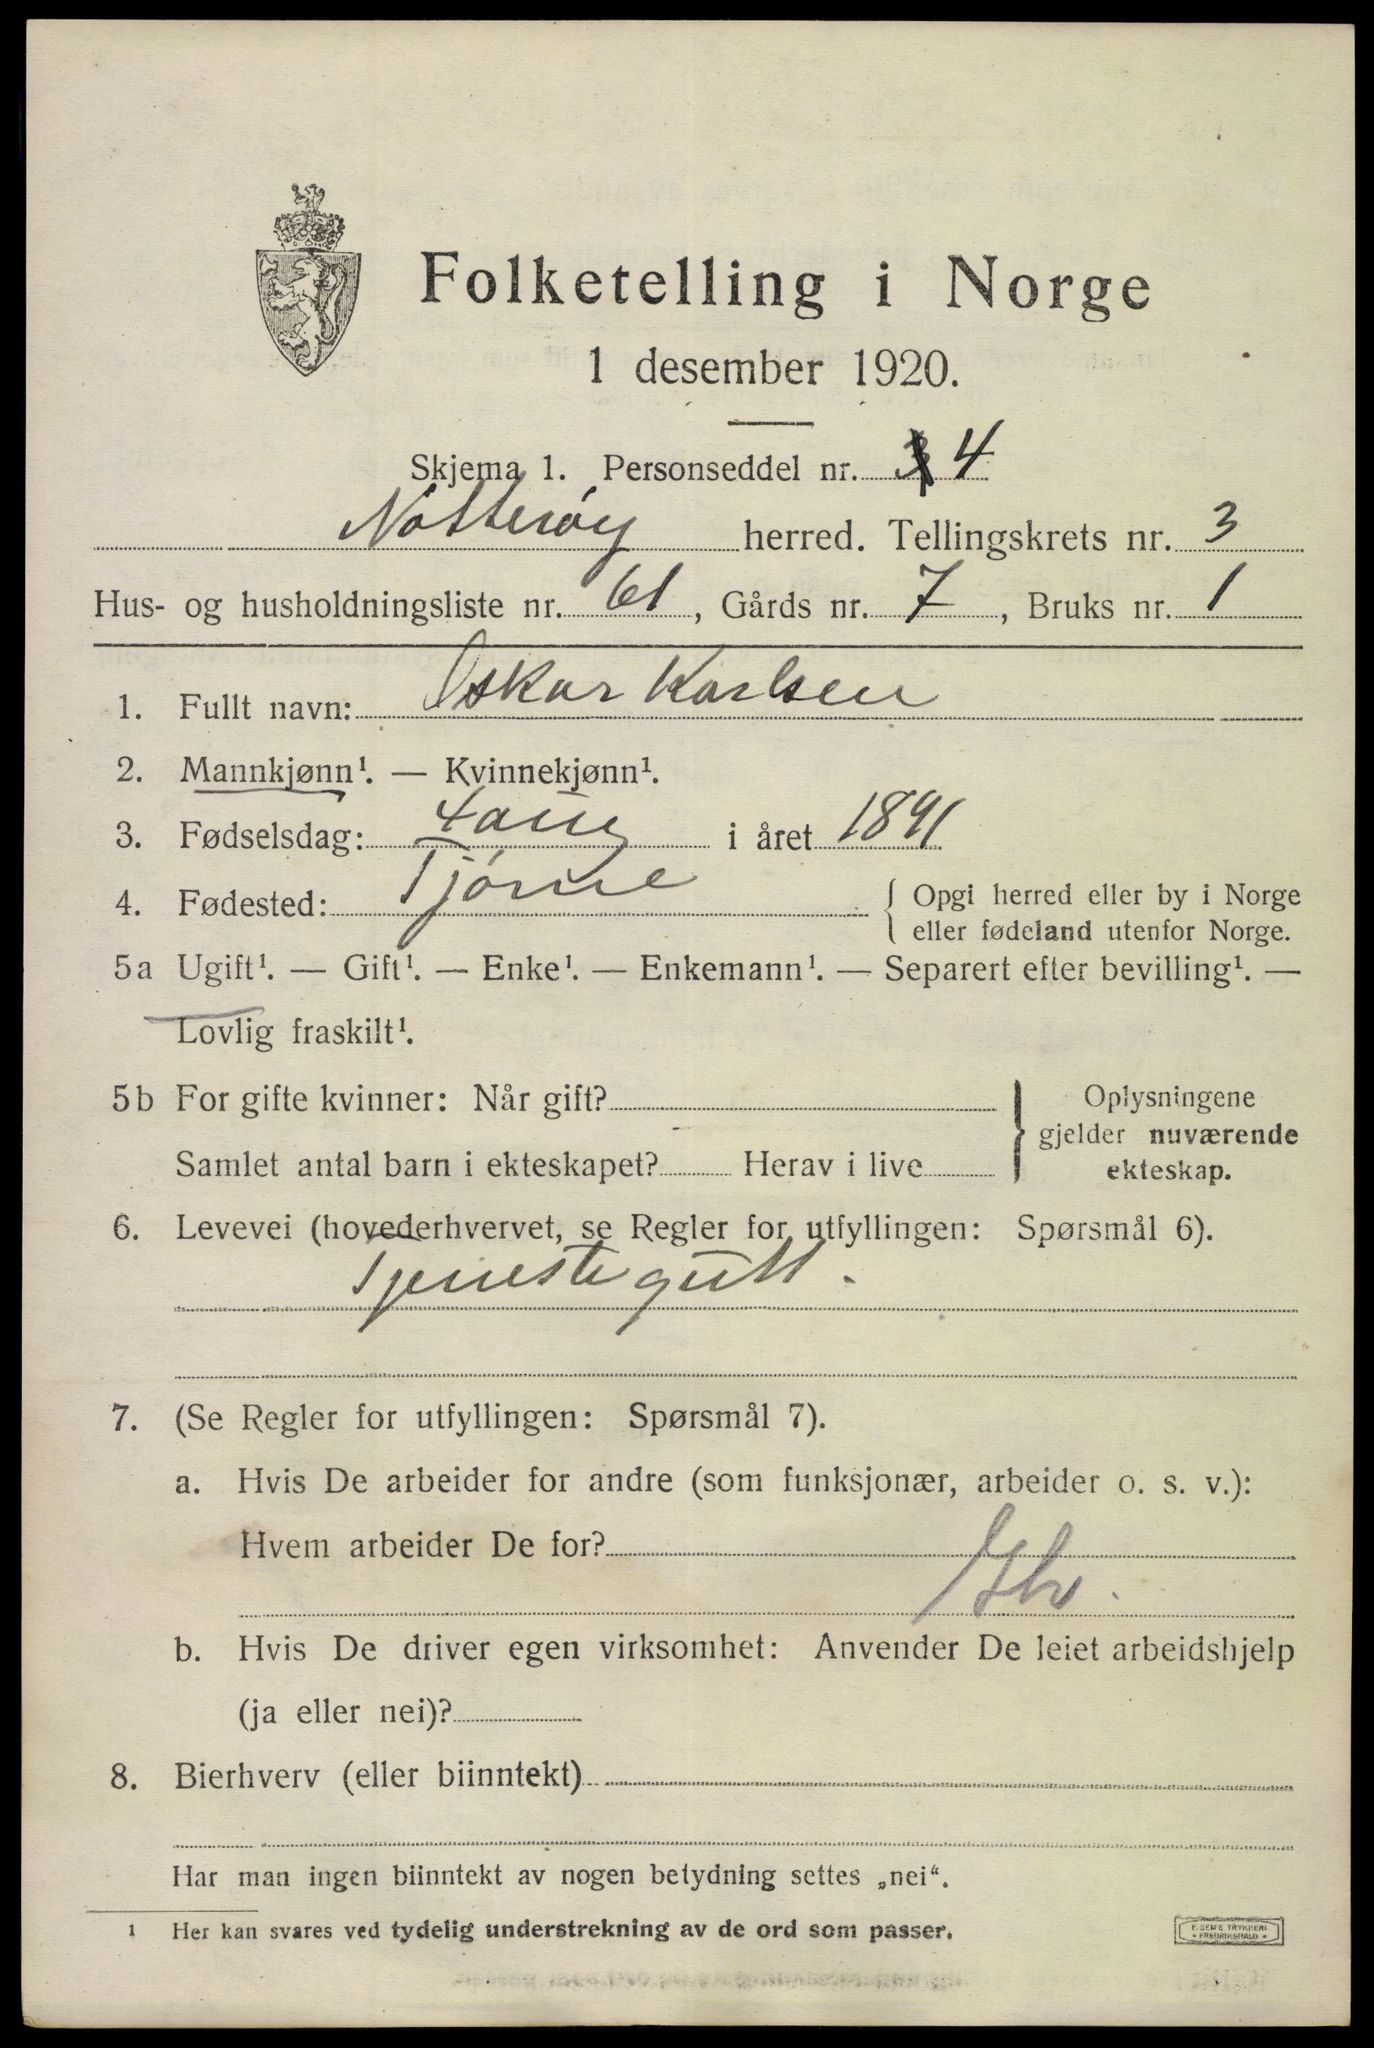 Folketelling i Norge
1 desember 1920.
Skjema 1. Personseddel nr. 3 4
Nøtterøy herred. Tellingskrets nr. 3
Hus- og husholdningsliste nr. 61, Gårds nr. 7, Bruks nr. 1
1. Fullt navn: Oskar Karlsen
2. Mannkjønn¹. — Kvinnekjønn¹.
3. Fødselsdag: 4 aug i året 1891
4. Fødested: Tjøme { Opgi herred eller by i Norge
eller fødeland utenfor Norge.
5a Ugift¹. — Gift¹. — Enke¹. — Enkemann¹. — Separert efter bevilling¹. —
Lovlig fraskilt¹.
5b For gifte kvinner: Når gift? } Oplysningene
gjelder nuværende
Samlet antal barn i ekteskapet? Herav i live
ekteskap.
6. Levevei (hovederhvervet, se Regler for utfyllingen: Spørsmål 6).
Tjenestegutt.
7. (Se Regler for utfyllingen: Spørsmål 7).
a. Hvis De arbeider for andre (som funksjonær, arbeider o. s. v.):
Hvem arbeider De for?
b. Hvis De driver egen virksomhet: Anvender De leiet arbeidshjelp
(ja eller nei)?
8. Bierhverv (eller biinntekt)
Har man ingen biinntekt av nogen betydning settes „nei“.
¹ Her kan svares ved tydelig understrekning av de ord som passer.
E. SEM'S TRYKKERI
• FREDRIKSHALD •